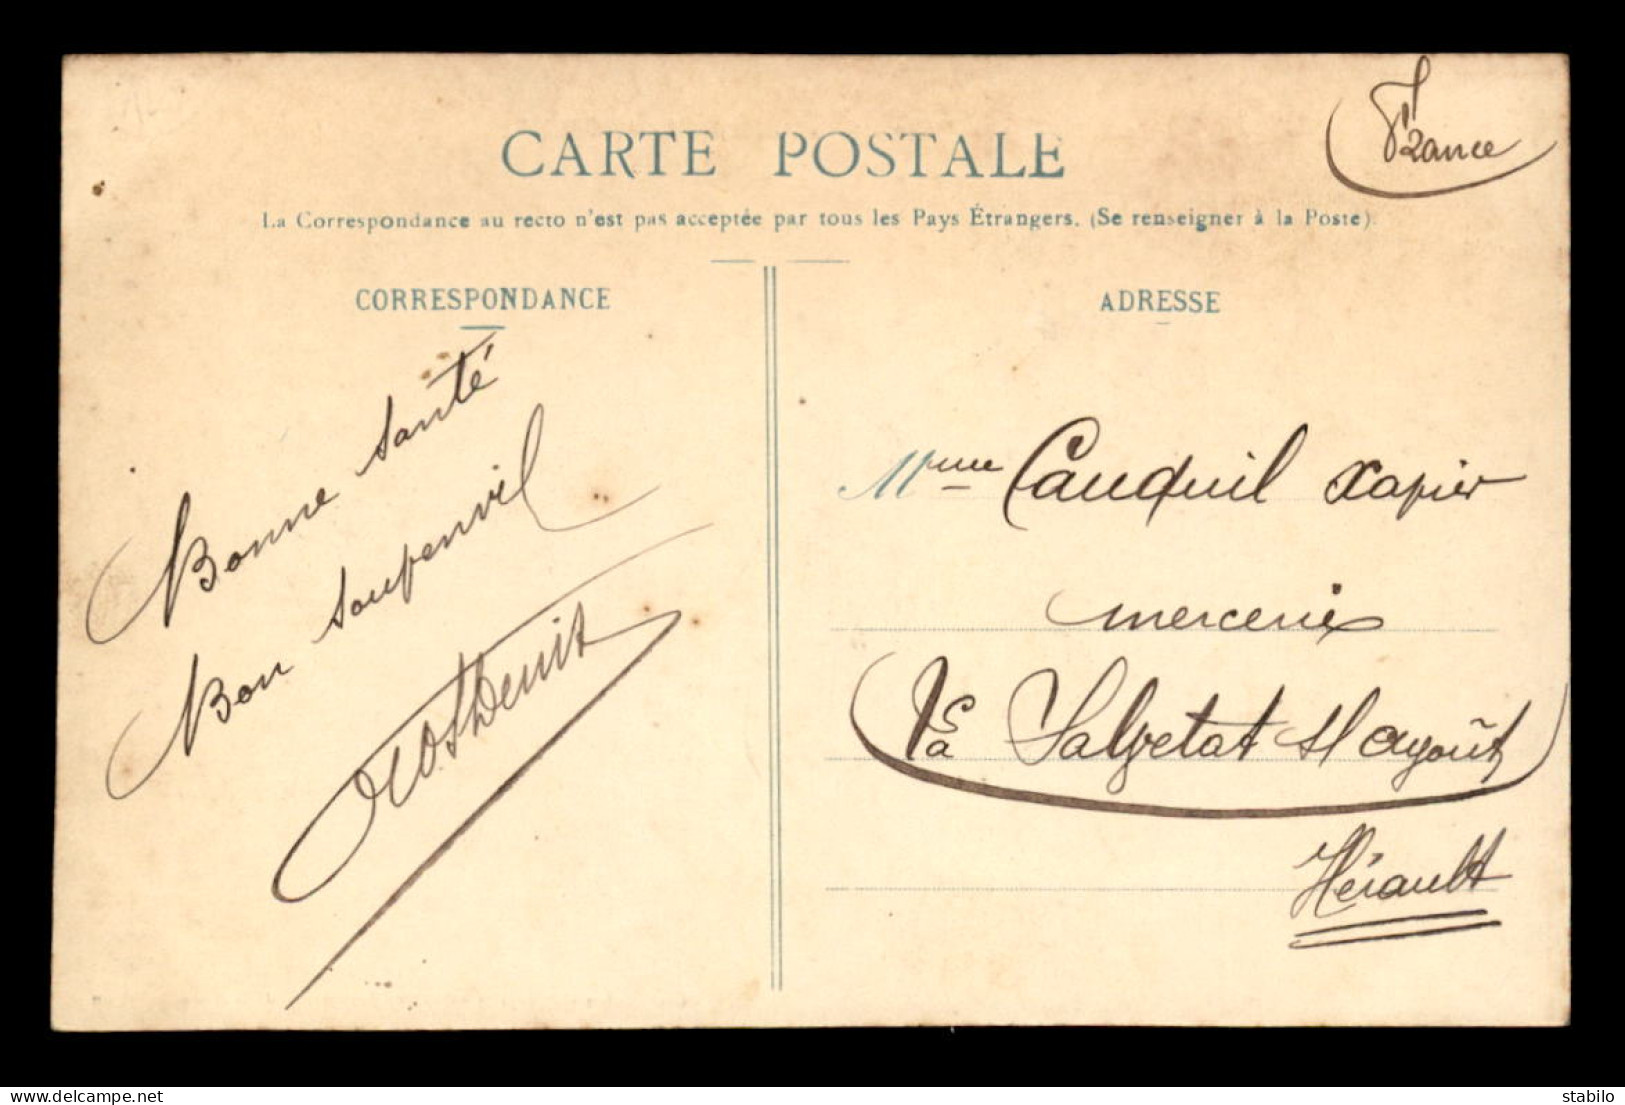 France
CARTE POSTALE
La Correspondance au recto n'est pas acceptée par tous les Pays Étrangers. (Se renseigner à la Poste).
CORRESPONDANCE
Bonne santé
Bon soupenvil
ADRESSE
Mme Cauquil Xapier
mercerie
La Salvetat s/ Agoût
Hérault
delcampe.net
stabilo